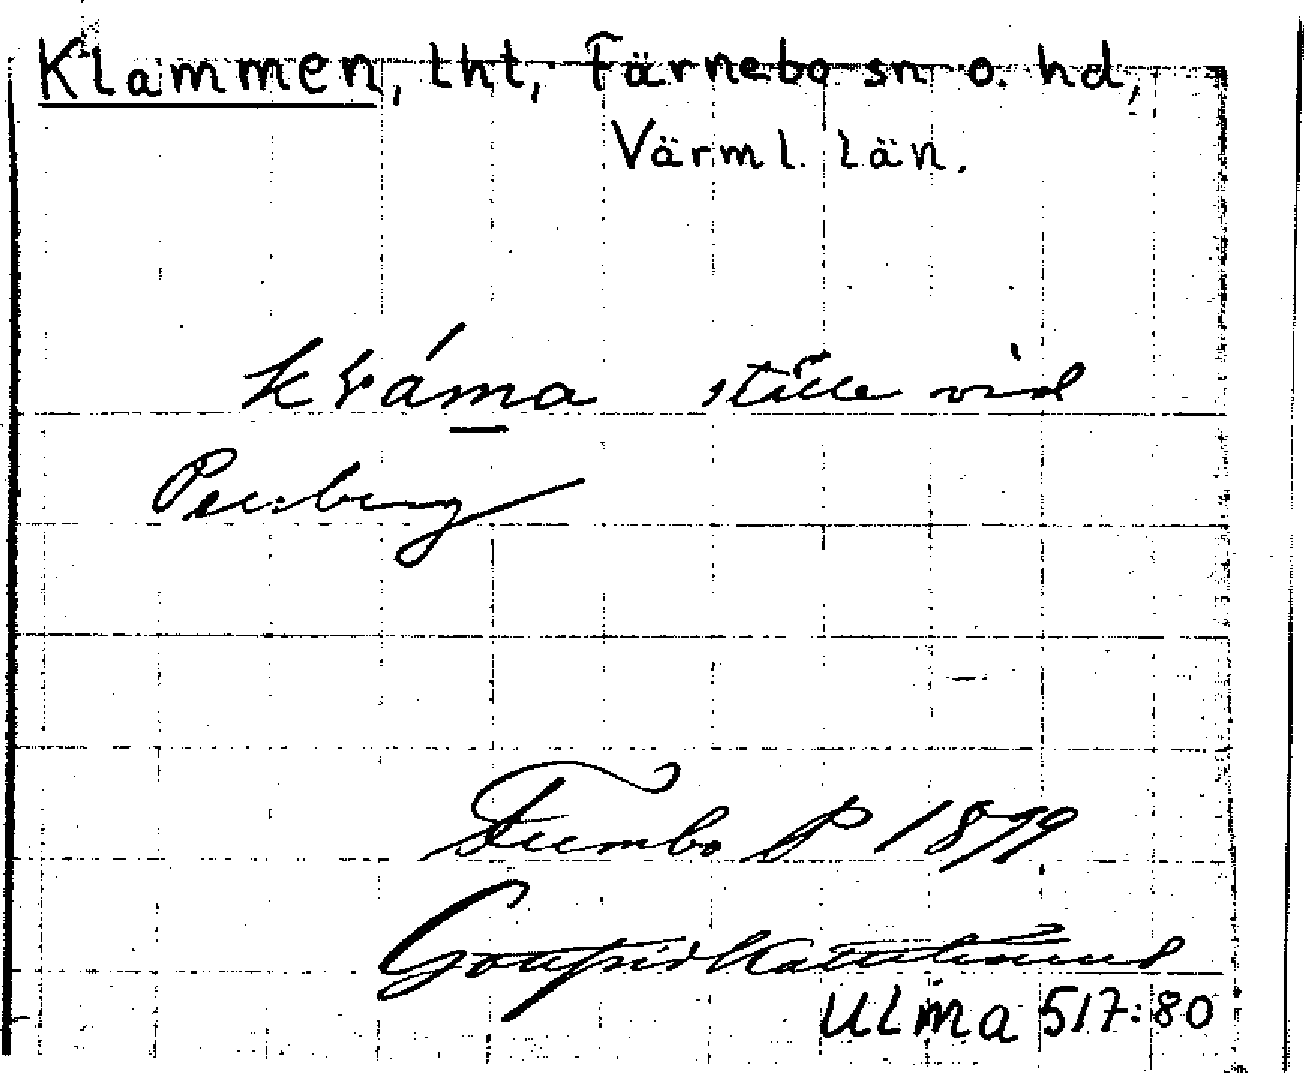 Klammen, lht, Färnebo sn o. hd,
Värml. län.
kráma ställe vid
Persberg
Fernebo P 1899.
Gottfrid Kallstenius
ULma 517:80